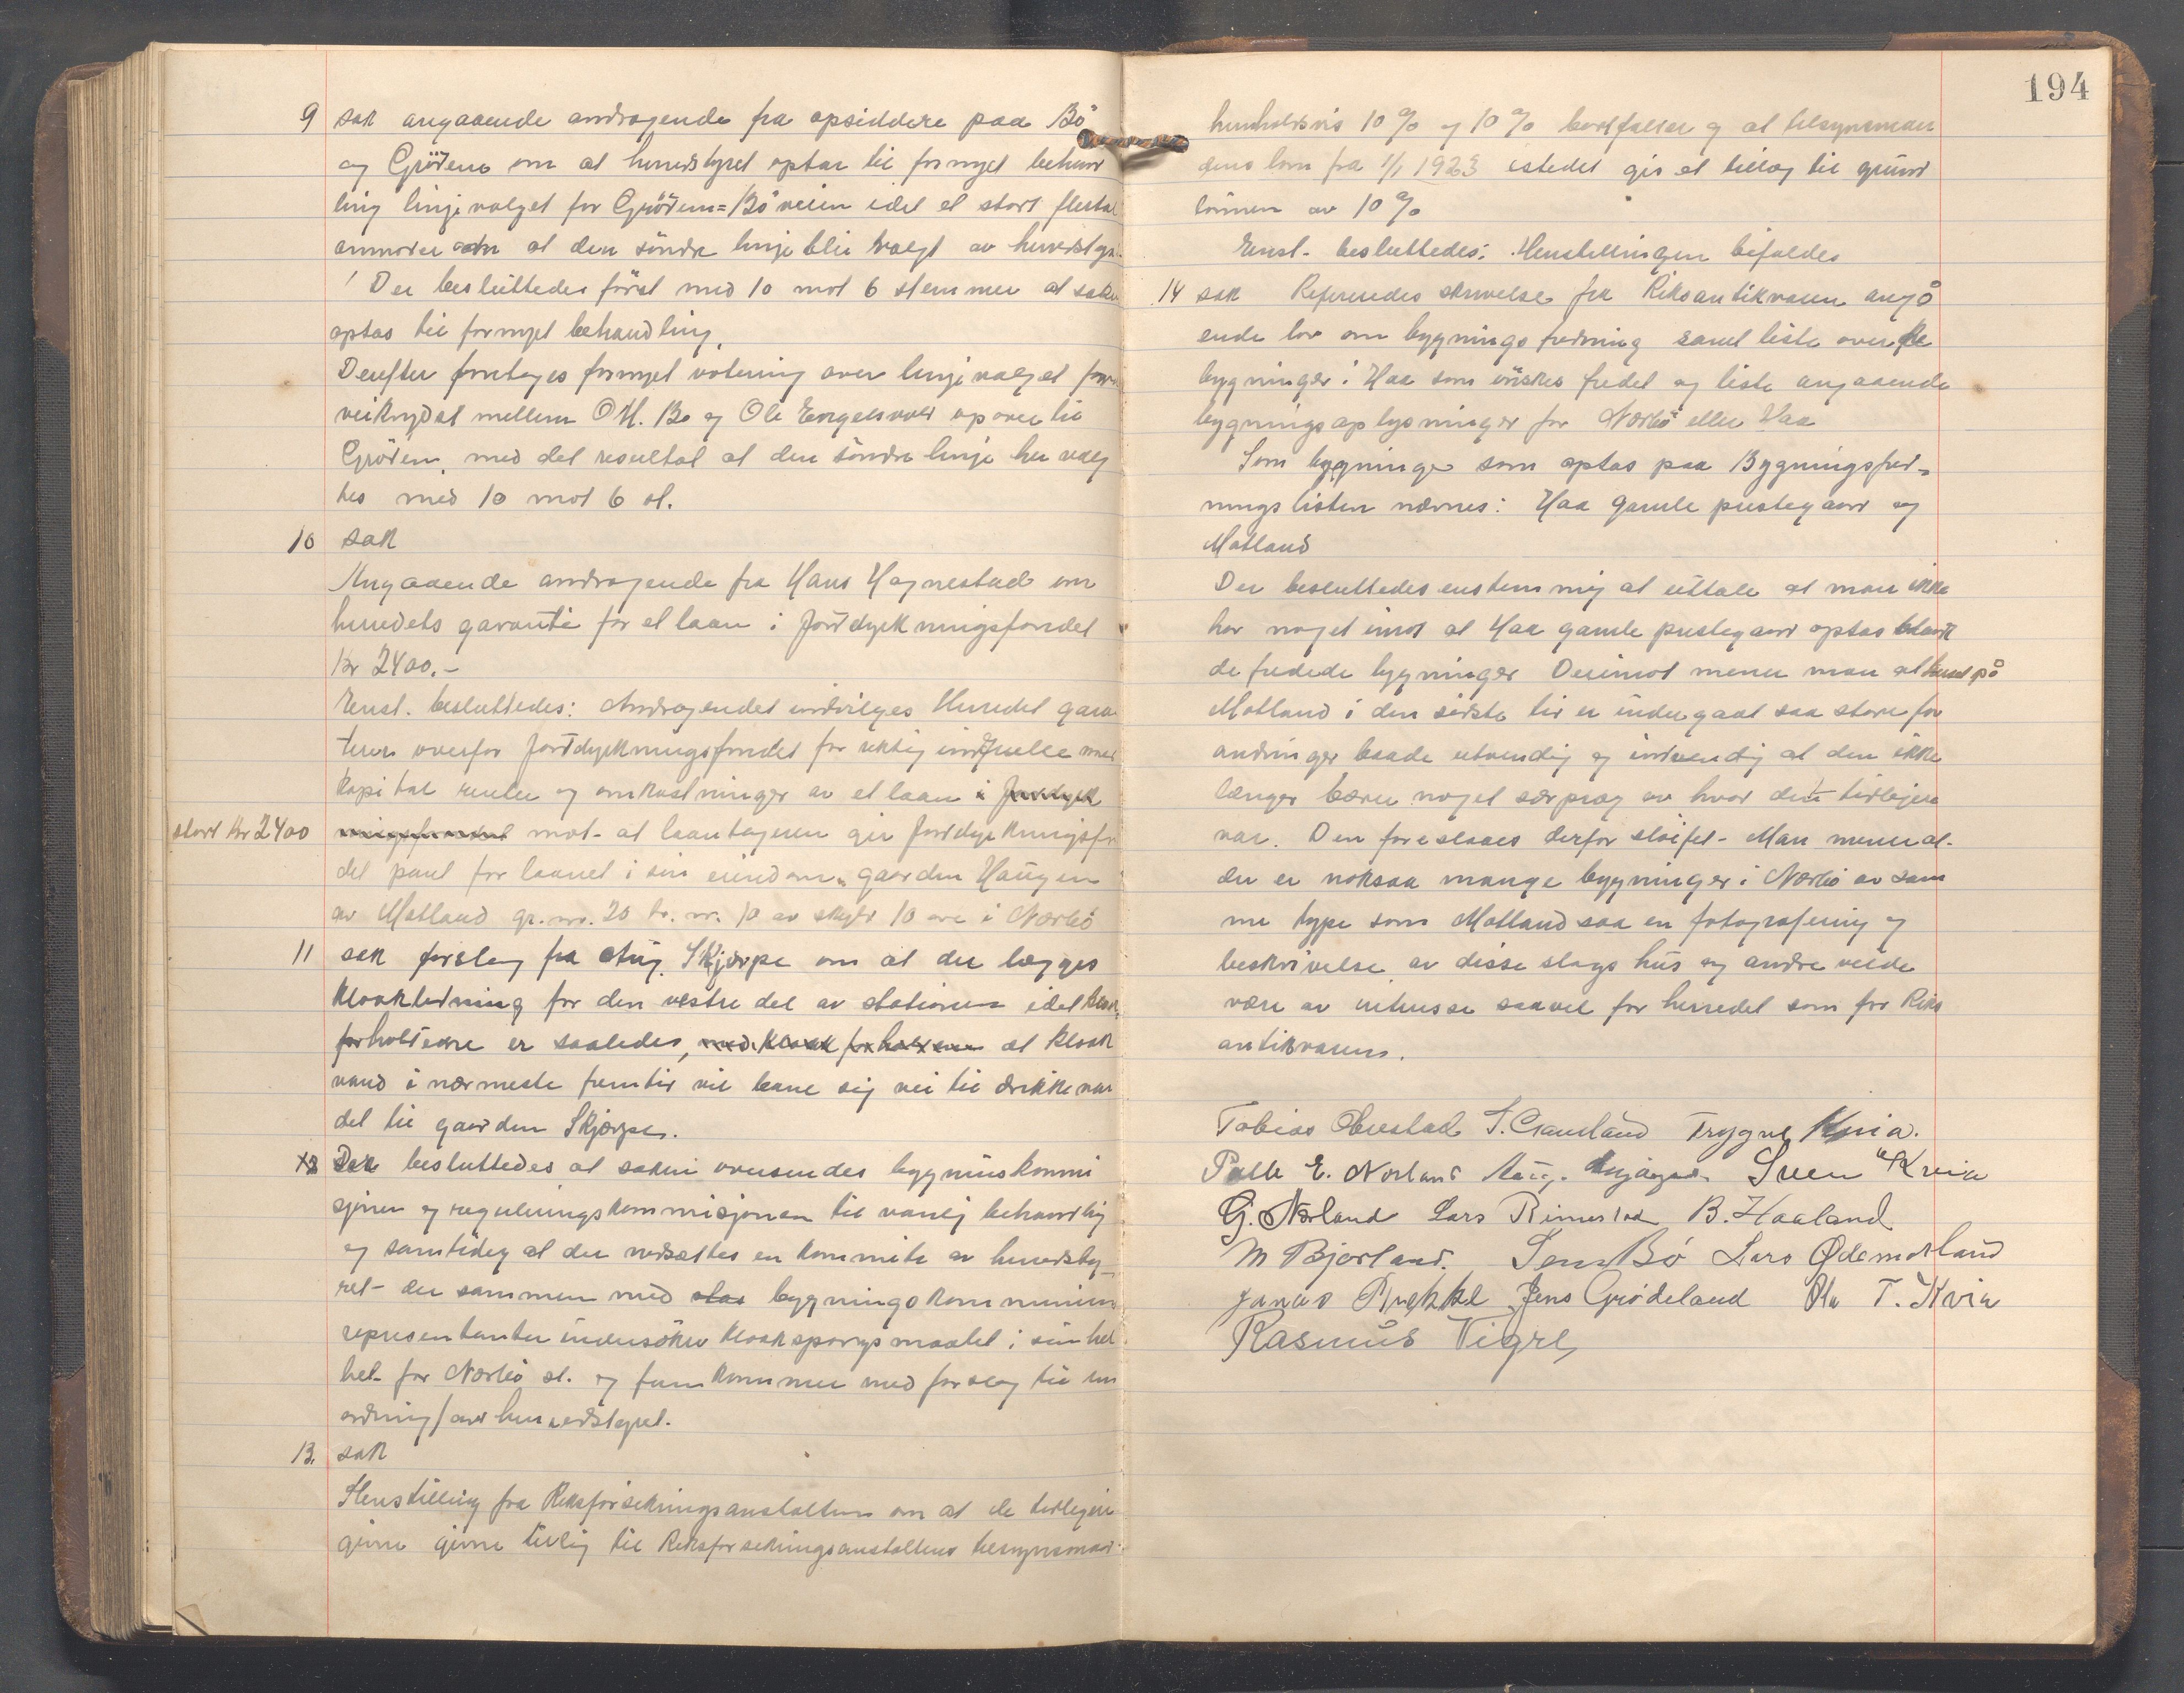 9 sak angaaende andragende fra opsiddere paa Bö
og Gröðem om at herredstyret optar til fornyet behand
ling linjevalget for Gröðem=Bö veien idet et stort flertal
anmoder om at den söndre linje blir valgt av herredstyr.
Der besluttedes först med 10 mot 6 stemmer at saken
optas til fornyet behandling.
Derefter foretoges fornyet votering over linjevalget fra
veikrydset mellem O.M. Bö og Ole Engelsvold opover til
Grödem, med det resultat at den söndre linje her valg
tes med 10 mot 6 st.
10 sak
Angaaende andragende fra Hans Hognestad om
herredets garanti for et laan i Jorddyrkningsfondet
Kr 2400.-
Enst. besluttedes: Andragendet indvilges Herredet gara
terer overfor Jorddyrkningsfondet for riktig indfrielse med
kapital renter og omkostninger av et laan i Jorddyrk
stort Kr 2400 ningsfondet mot- at laantageren gir Jorddyrkningsfon
det pant for laanet i sin eiendom, gaarden Haugen
av Motland gr. nr. 20 br. nr. 10 av skyld 10 øre i Nærbö
11 sak forslag fra Aug. Skjærpe om at der lægges
kloakledning for den vestre del av stationen idet kloak
forholdene er saaledes, med kloak forholdene at kloak
vand i nærmeste fremtid vil bane sig vei til drikkevan
det til gaarden Skjærpe.
12 Der besluttedes at saken oversendes bygningskommi
sjonen og reguleringskommisjonen til vanlig behandling
og samtidig at der nedsættes en kommite av herredsty-
ret- der sammen med bygningskommissionens
representanter undersöker kloakspørgsmaalet i sin hel
het for Nærbö st. og fremkommer med forslag til en
ordning for herredstyret.
13. sak
Henstilling fra Riksforsikringsanstalten om at de tidligere
givne tillæg til Riksforsikringsanstaltens tilsynsmand
194
henholdsvis 10 % og 10 % bortfaller og at tilsynsman
dens lønn fra 1/1 1923 istedet gis et tillæg til grund
lönnen av 10 %
Enst. besluttedes: Henstillingen bifaldes
14 sak Refereredes skrivelse fra Riksantikvaren angå
ende lov om bygningsfredning samt liste over de
bygninger i Haa som önskes fredet og liste angaaende
bygningsoplysninger for Nærbö eller Haa
Som bygninger som optas paa Bygningsfred-
ningslisten nævnes: Haa gamle prestegaard og
Motland
Der besluttedes enstemmig at uttale at man ikke
har noget imot at Haa gamle prestegaard optas blandt
de fredede bygninger Derimot mener man at huset på
Motland i den sidste tid er undergaat saa store for
andringer baade utvendig og indvendig at den ikke
længer bærer noget særpræg av hvad den tidligere
var. Den foreslaaes derfor slöifet- Man mener at-
der er noksaa mange bygninger i Nærbö av sam
me type som Motland saa en fotografering og
beskrivelse av disse slags hus og andre vilde
være av interesse saavel for herredet som for Riks
antikvaren.
Tobias Obrestad S. Grauland Trygve Kvia.
Palle E. Norland Aug. Skjærpe Sven Kvia
G. Nærland Lars Rimestad B. Haaland
M Bjorland. Jens Bö Lars Ødemotland
Jonas Brekke Jens Grödeland Ola T. Kvia
Rasmus Vigre,